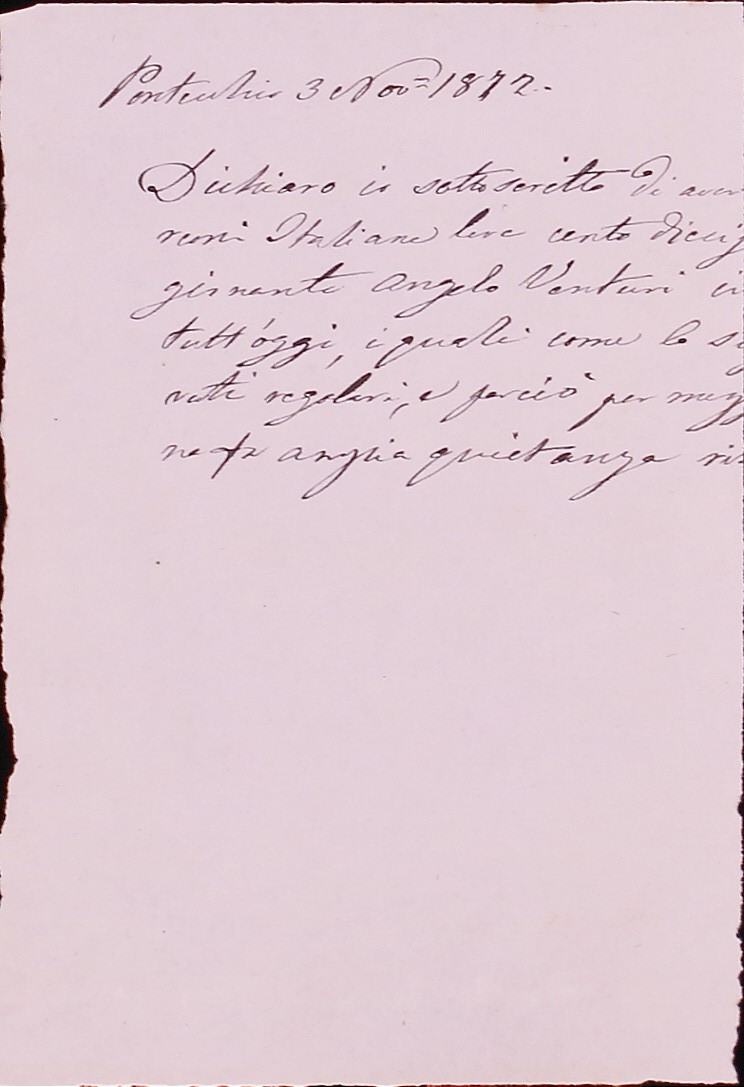 Pontecchio 3 Nov= 1872.-
Dichiaro io sottoscritto di aver
Italiane lire cento dieci
Angelo Venturi in
tutt'oggi, i quali come le
regolari, e perciò per mezz
ampia quietanza